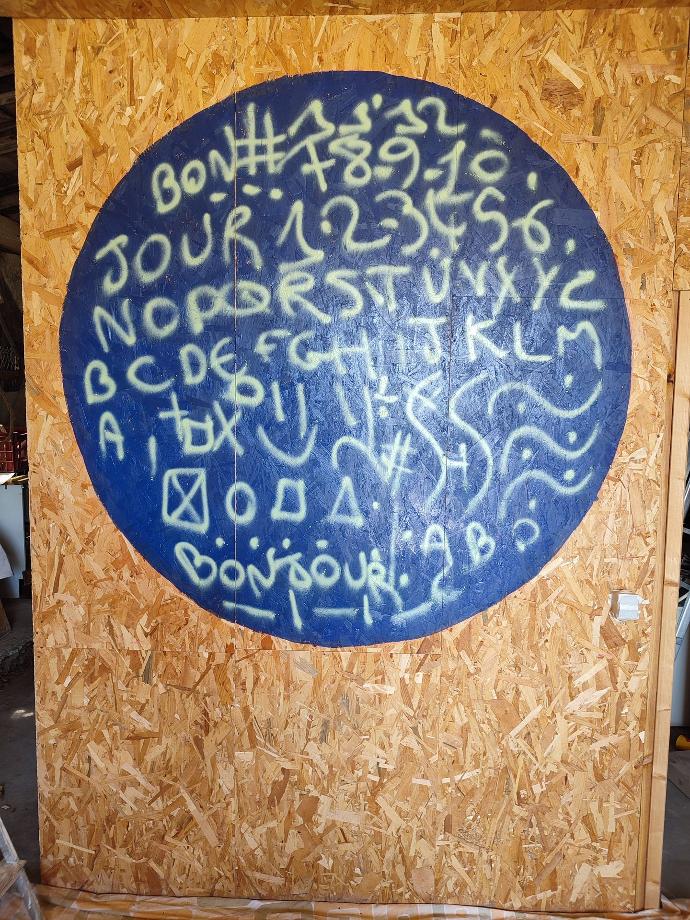 BON# 
7.8.9.10.
JOUR 1.2.3.4.5.6.
NOPQRSTUVXYZ
BCDEFGHIJKLM
A
BONJOUR. A B O